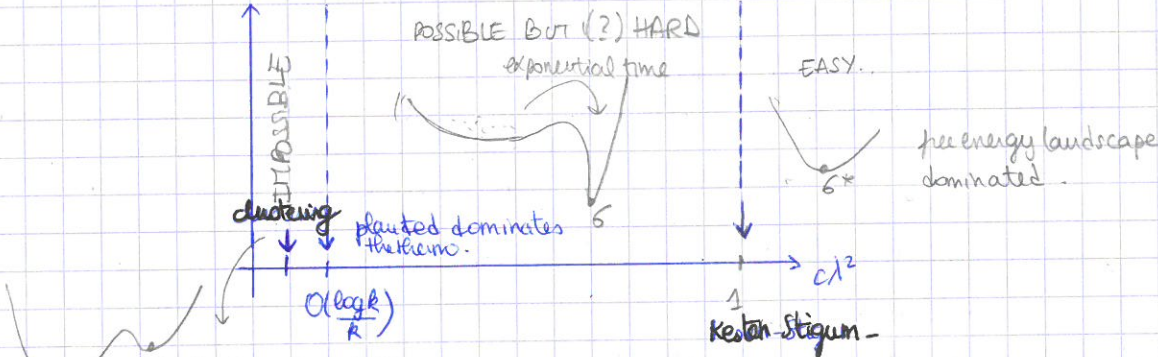 POSSIBLE BUT (?) HARD
exponential time
EASY..
IMPOSSIBLE
free energy landscape
dominated.
σ*
σ
clustering
planted dominates
the thermo.
cλ²
O(log k / k)
1
Kesten-Stigum-